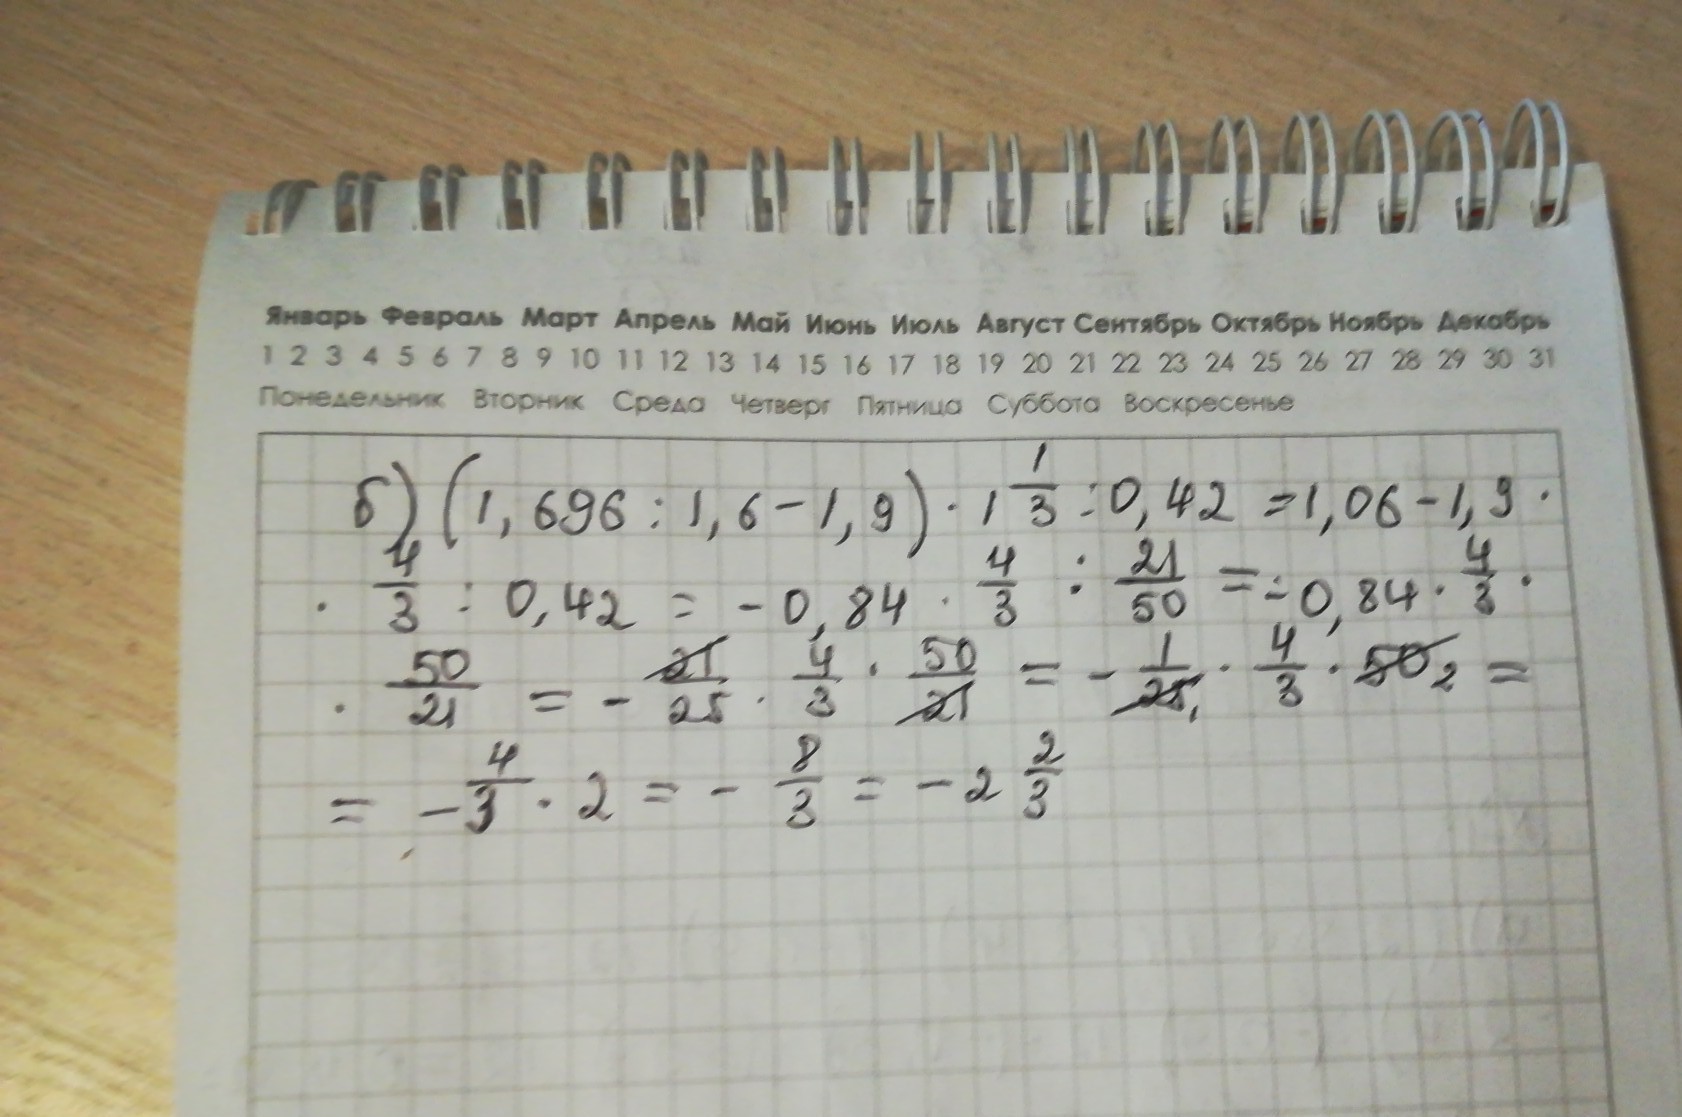 Январь Февраль Март Апрель Май Июнь Июль Август Сентябрь Октябрь Ноябрь Декабрь
1 2 3 4 5 6 7 8 9 10 11 12 13 14 15 16 17 18 19 20 21 22 23 24 25 26 27 28 29 30 31
Понедельник Вторник Среда Четверг Пятница Суббота Воскресенье
б) (1,696 : 1,6 - 1,9) · 1 1/3 : 0,42 = 1,06 - 1,9 ·
· 4/3 : 0,42 = - 0,84 · 4/3 : 21/50 = - 0,84 · 4/3 ·
· 50/21 = - 21/25 · 4/3 · 50/21 = - 1/25 1 · 4/3 · 50 2 =
= - 4/3 · 2 = - 8/3 = - 2 2/3